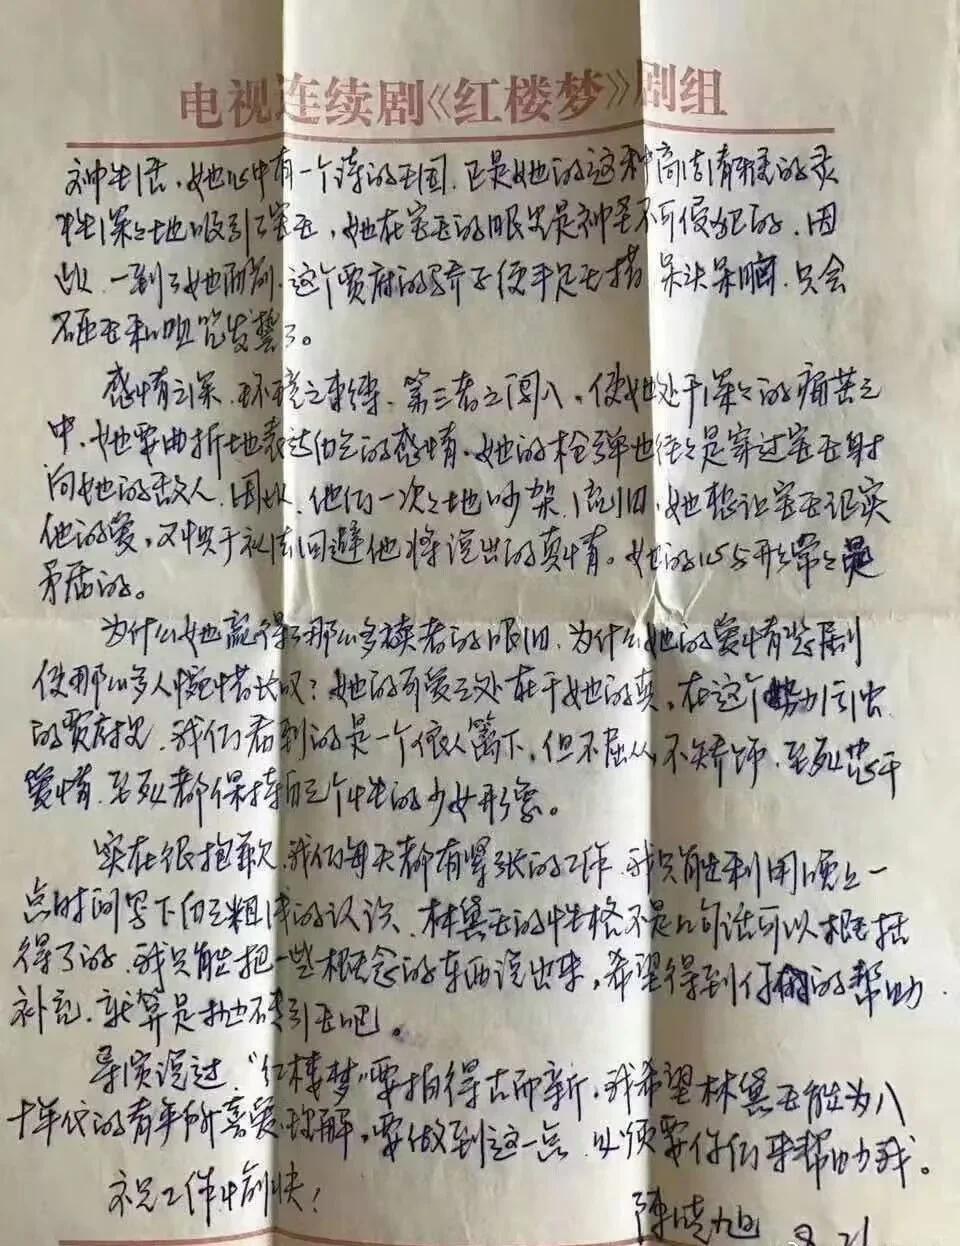 电视连续剧《红楼梦》剧组
神生活，她心中有一个诗的王国，正是她的这种高洁清雅的灵
性深深地吸引了宝玉，她在宝玉的眼里是神圣不可侵犯的，因
此，一到了她面前，这个贾府的骄子便手足无措呆头呆脑，只会
和咀咒发誓了。
感情之深，环境之束缚，第三者之闯入，使她处于深深的痛苦之
中，她要曲折地表达自己的感情，她的枪弹也往往是穿过宝玉射
向她的敌人，因此，他们一次次地吵架、流泪，她想让宝玉证实
他的爱，又惧于礼法回避他将说出的真情。她的心与形常常是
矛盾的。
为什么她赢得了那么多读者的眼泪，为什么她的爱情悲剧
使那么多人惋惜长叹？她的可爱之处在于她的真，在这个势力
的贾府里，我们看到的是一个依人篱下，但不屈从，不矫饰，至死忠于
爱情，至死都保持自己个性的少女形象。
实在很抱歉，我们每天都有紧张的工作，我只能利用晚上一
点时间写下自己粗浅的认识，林黛玉的性格不是几句话可以概括
得了的，我只能把一些概念的东西说出来，希望得到你们的帮助
补充，就算是抛砖引玉吧。
导演说过，“红楼梦”要拍得古而新，我希望林黛玉能为八
十年代的青年所喜爱、理解，要做到这一点，必须要你们来帮助我。
祝工作愉快！
陈晓旭 8.21